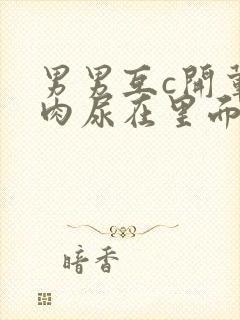 男男互c開車
肉尿在里而
暗香